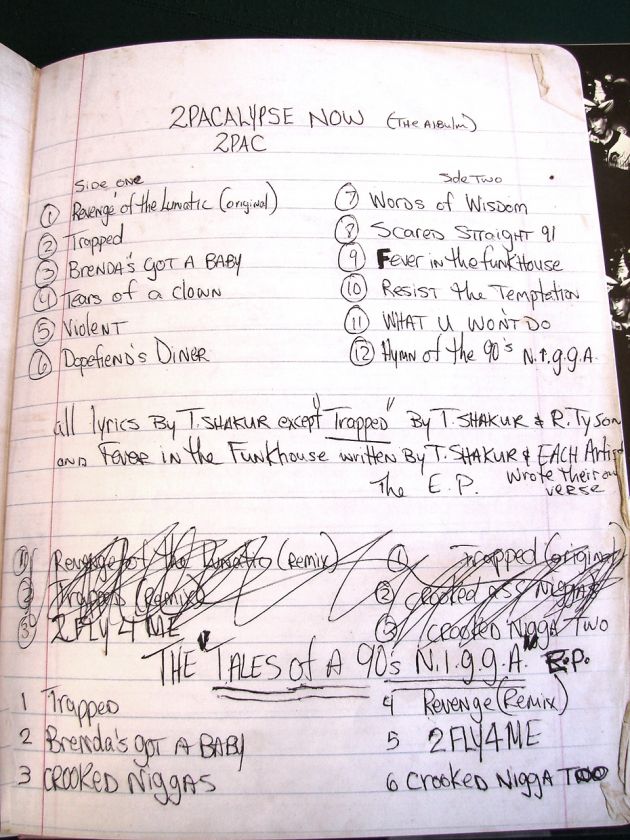 2PACALYPSE NOW (THE ALBUM)
2PAC
Side one
① Revenge of the Lunatic (original)
② Trapped
③ BRENDA'S GOT A BABY
④ Tears of a clown
⑤ Violent
⑥ Dopefiend's Diner
Side Two
⑦ Words of Wisdom
⑧ Scared Straight 91
⑨ Fever in the funkHouse
⑩ Resist the Temptation
⑪ WHAT U WON'T DO
⑫ Hymn of the 90's N.I.G.G.A.
all lyrics By T. SHAKUR except "Trapped" By T. SHAKUR & R. Tyson
AND Fever in the Funkhouse written By T. SHAKUR & EACH Artist
wrote their own
verse
The E.P.
① Revenge of the Lunatic (Remix)
② Trapped (Remix)
③ 2 FLY 4 ME
① Trapped (original)
② CROOKED ASS NIGGAS
③ CROOKED NIGGA TWO
THE "TALES of A 90's N.I.G.G.A." E.P.
1 Trapped
2 Brenda's GOT A BABY
3 CROOKED NIGGAS
4 Revenge (Remix)
5 2FLY4ME
6 CROOKED NIGGA TOO